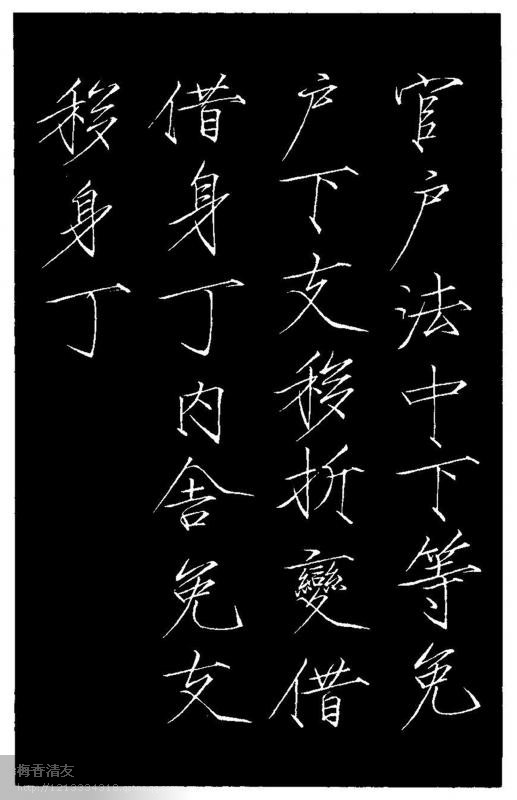 官户法中下等免
户下支移折變借
借身丁内舍免支
移身丁
梅香清友